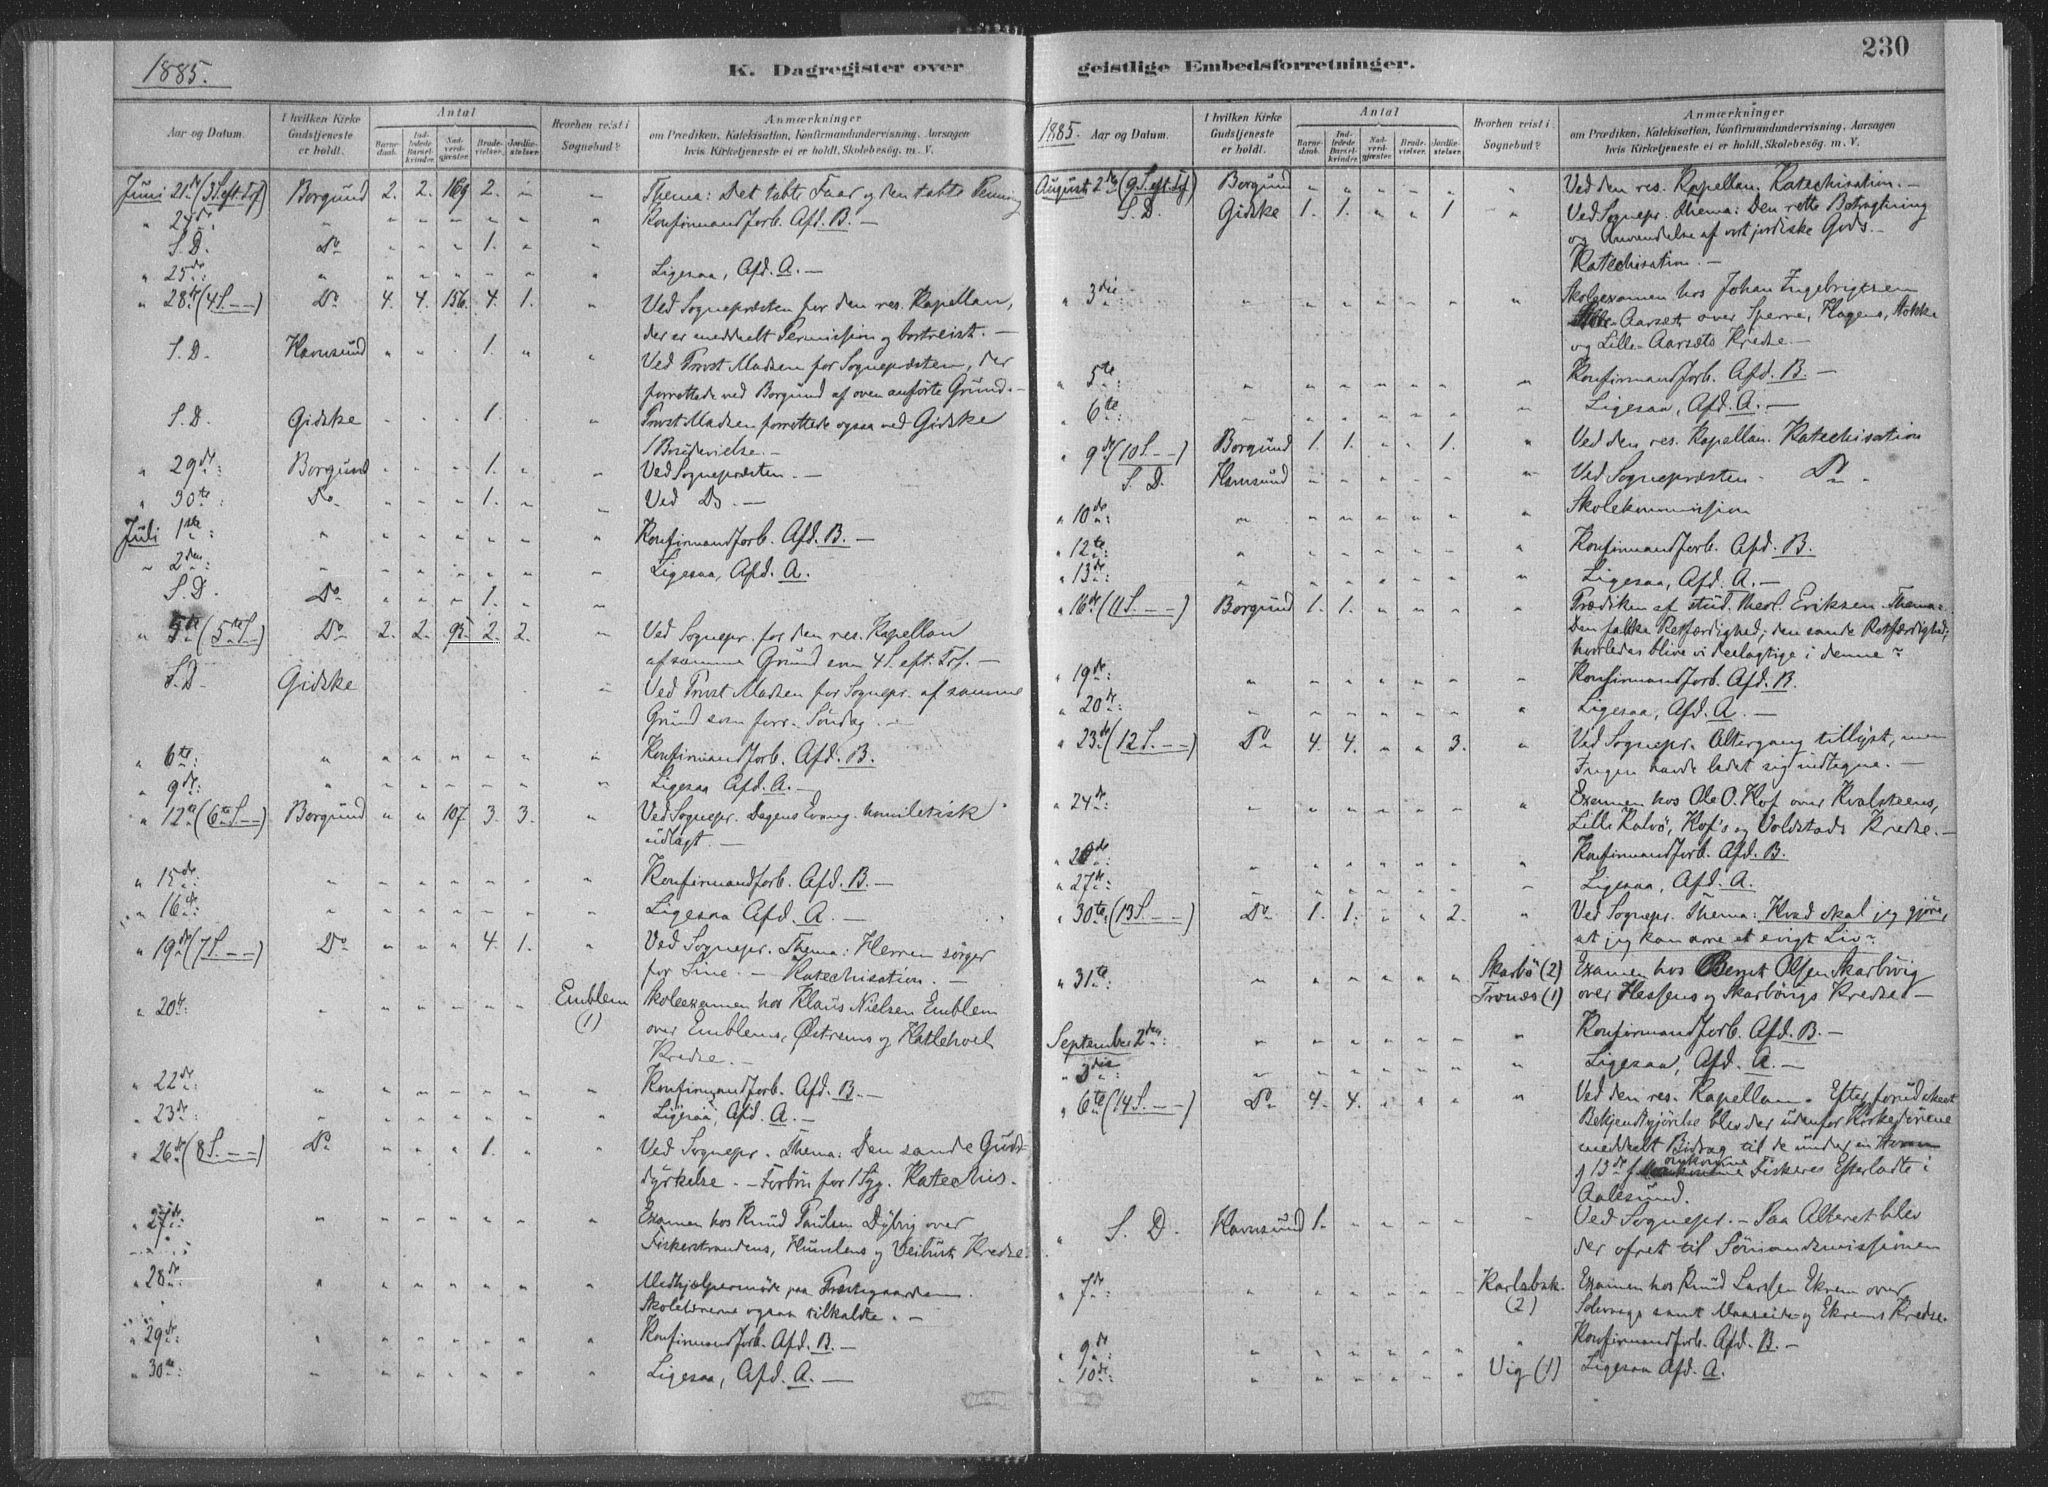 1885.
K. Dagregister over
Aar og Datum.
I hvilken Kirke Gudstjeneste er holdt.
Antal
Barnedaab. Indledede Barselkvinder. Nadverdgjæster. Brudevielser. Jordfæstelser.
Hvorhen reist i Sognebud?
Anmærkninger
om Prædiken, Katekisation, Konfirmandundervisning, Aarsagen
hvis Kirketjeneste ei er holdt, Skolebesøg, m. V.
Juni 21de (3 S. eft. Trf.) Borgund 2. 2. 169 2. " " Thema: Det tabte Faar og den tabte Penning
" 24de: " " " " " " " Konfirmandforb. Afd. B. —
S. D. Do " " " 1. " "
" 25de: " " " " " " " Ligesaa, Afd. A. —
" 28de (4 S. — —) Do 4. 4. 156. 4. 1. " Ved Sognepræsten for den res. Kapellan,
der er meddelt Permission og bortreist. —
S. D. Hamsund " " . 1. " " Ved Provst Madsen for Sognepræsten, der
forrettede ved Borgund af oven anførte Grund. —
S. D. Gidske . . . 1. " Provst Madsen forrettede ogsaa ved Gidske
1 Brudevielse. —
" 29de: Borgund " " " 1. " " Ved Sognepræsten. —
" 30te: Do " " " 1. " " Ved Do. —
Juli 1ste: " " " " " " " Konfirmandforb. Afd. B. —
" 2den: " " " " " " " Ligesaa, Afd. A.
S. D. Do " " " 1. " "
" 5te (5te S. —) Do 2. 2. 95. 2. 2. " Ved Sognepr. for den res. Kapellan
af samme Grund som 4 S. eft. Trf. —
S. D. Gidske " Ved Provst Madsen for Sognepr. af samme
Grund som forr. Søndag. —
" 6te: " " " " " " " Konfirmandforb. Afd. B.
" 9de: " " " " " " " Ligesaa Afd. A. —
" 12te (6te S. —) Borgund " " 107. 3. 3. " Ved Sognepr. Dagens Evang. homiletisk
udlagt. —
" 15de: " " " " " " " Konfirmandforb. Afd. B. —
" 16de: " " " " " " " Ligesaa Afd. A. —
" 19de (7 S. — —) Do " " " 4. 1. " Ved Sognepr. Thema: Herren sørger
for Sine. — Katechisation. —
" 20de: " " " " " " Emblem (1) Skoleexamen hos Klaus Nielsen Emblem
over Emblems, Østrems og Hatlehoel
Kredse. —
" 22de: " " " " " " " Konfirmandforb. Afd. B. —
" 23de: " " " " " " " Ligesaa, Afd. A. —
" 26de (8 S. — —) Do " " " 1. " " Ved Sognepr. Thema: Den sande Guds-
dyrkelse. — Forbøn for 1 Syg. Katechis.
" 27de: " " " " " " " Examen hos Knud Paulsen Dybvig over
Fiskerstrandens, Humlens og Veibust Kredse.
" 28de: " " " " " " " Medhjælpermøde paa Præstegaarden.
Skolelærerne ogsaa tilkaldte. —
" 29de: " " " " " " " Konfirmandforb. Afd. B. —
" 30te: " " " " " " " Ligesaa, Afd. A. —
geistlige Embedsforretninger.
230
1885.
Aar og Datum.
I hvilken Kirke Gudstjeneste er holdt.
Antal
Barnedaab. Indledede Barselkvinder. Nadverdgjæster. Brudevielser. Jordfæstelser.
Hvorhen reist i Sognebud?
Anmærkninger
om Prædiken, Katekisation, Konfirmandundervisning, Aarsagen
hvis Kirketjeneste ei er holdt, Skolebesøg, m. V.
August 2den (9 S. eft. Trf.) Borgund " " " " " " Ved den res. Kapellan. Katechisation. —
S. D. Gidske 1. 1. " " 1 " Ved Sognepr. Thema: Den rette Betragtning
og Anvendelse af vort jordiske Gods. —
Katechisation. —
" 3die: " " " " " " " Skoleexamen hos Johan Ingebrigtsen
Aarsæt over Sperre, Hagens, Stokke
og Lille-Aarsæts Kredse. —
" 5te: " " " " " " " Konfirmandforb. Afd. B. —
" 6te: " " " " " " " Ligesaa, Afd. A. —
" 9de (10 S. — —) Borgund 1. 1. " " 1. " Ved den res. Kapellan. Katechisation
S. D. Hamsund " " " " " " Ved Sognepræsten. Do.
" 10de: " " " " " " " Skolekommission
" 12te: " " " " " " " Konfirmandforb. Afd. B.
" 13de: " " " " " " " Ligesaa, Afd. A. —
" 16de (11 S. — —) Borgund 1. 1. " " " " Prædiken af stud. theol. Eriksen. Thema:
Den falske Retfærdighed; den sande Retfærdighed;
hvorledes blive vi deelagtige i denne?
" 19de: " " " " " " " Konfirmandforb. Afd. B.
" 20de: " " " " " " " Ligesaa, Afd. A. —
" 23de (12 S. — —) Do 4. 4. " " 3. " Ved Sognepr. Altergang tillyst, men
Ingen havde ladet sig indtegne. —
" 24de: " " " " " " " Examen hos Ole O. Hof over Kvalsteens,
Lille Kalvø, Hof's og Voldstads Kredse. —
" 26de: " " " " " " " Konfirmandforb. Afd. B.
" 27de: " " " " " " " Ligesaa, Afd. A.
" 30te (13 S. — —) Do 1. 1. " " 2. " Ved Sognepr. Thema: Hvad skal jeg gjøre,
at jeg kan arve et evigt Liv?
" 31te: " " " " " " Skarbø (2) Examen hos Bernt Olsen Skarbøvig
Tronæs (1) over Hessens og Skarbøvigs Kredse. —
September 2den: " " " " " " " Konfirmandforb. Afd. B. —
" 3die: " " " " " " " Ligesaa, Afd. A. —
" 6te (14 S. — —) Do 4. 4. " " " " Ved den res. Kapellan. Efter forudskeet
Bekjendtgjørelse blev der udenfor Kirkedørene
meddelt Bidrag til de under en Storm
omkomne Fiskeres Efterladte i
Aalesund.
" S. D. Hamsund 1. " " " " " Ved Sognepr. — Paa Alteret blev
der ofret til Sømandsmissionen
" 7de: " " " " " " Karlsbak. (2) Examen hos Knud Larssen Ekrem over
Solevaags samt Maaseide- og Ekrems Kredse.
" 9de: " " " " " " " Konfirmandforb. Afd. B. —
" 10de: " " " " " " Vig (1) Ligesaa Afd. A.